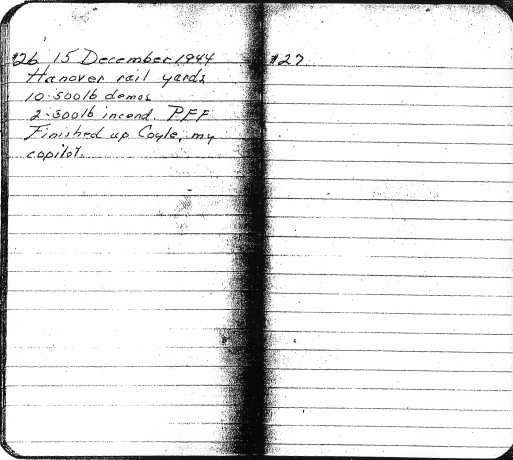 #26 15 December 1944
Hanover rail yards
10-500lb demos
2-500lb incend. PFF
Finished up Coyle, my
copilot.
#27